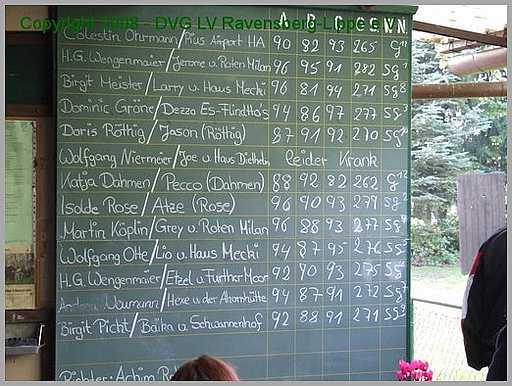 Copyright 2008 - DVG LV Ravensberg-Lippe e.V.
A B C
Colestin Ohrmann/Pius Airport HA 90 82 93 265 G
H.G. Wengenmaier/Jerome v. Roten Milan 96 95 91 282 SG
Birgit Meister/Larry v. Haus Mecki 96 81 94 271 SG
Dominic Gröne/Dezzo Es-Flindtho's 94 86 97 277 SG
Doris Röthig/Jason (Röthig) 87 91 92 270 SG
Wolfgang Niermeier/Joe v. Haus leider Krank
Katja Dahmen/Pecco (Dahmen) 88 92 82 262 G
Isolde Rose/Atze (Rose) 96 90 93 279 SG
Martin Köplin/Grey v. Roten Milan 96 88 93 277 SG
Wolfgang Otte/Lio v. Haus Mecki 94 87 95 276 SG
H.G. Wengenmaier/Etzel v. Further Moor 92 90 93 275 SG
Naumann/Hexe v. der Ahornhütte 94 87 91 272 SG
Birgit Picht/Baika v. Schwannenhof 92 88 91 271 SG
Richter: Achim